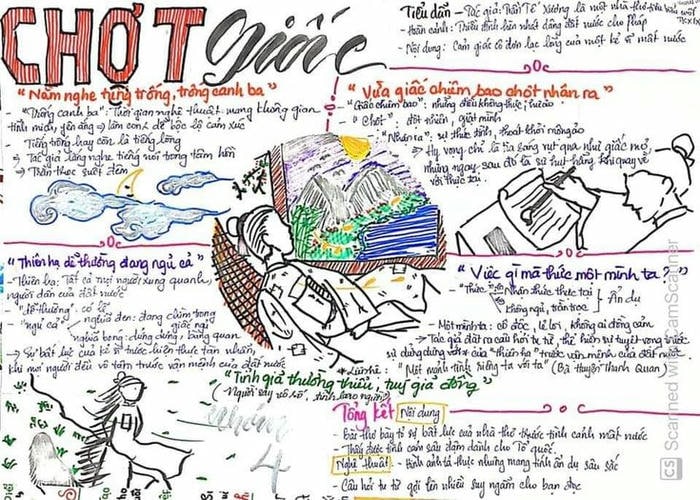 CHỢT Giấc
Tiểu dẫn - Tác giả: Trần Tế Xương là một nhà thơ
- Hoàn cảnh:
- Nội dung: Cảm giác cô đơn lạc lõng của một kẻ sĩ mất nước
"Nằm nghe tiếng trống, trống canh ba"
- "Trống canh ba": Thời gian nghệ thuật: mang không gian
tĩnh mịch, yên ắng ⇒ làm để bộc lộ cảm xúc
- Tiếng trống hay còn là tiếng lòng
⇒ Tác giả lắng nghe tiếng nói trong tâm hồn
⇒ Trằn trọc suốt đêm
"Vừa giấc chiêm bao chợt nhận ra"
- "Giấc chiêm bao": những điều không thực, hư ảo
- "Chợt": đột nhiên, giật mình
- "Nhận ra": sự thức tỉnh, thoát khỏi mộng ảo
⇒ Hy vọng chỉ là tia sáng vụt qua như giấc mơ,
nhưng ngay sau đó là sự hụt hẫng khi quay về
với thực tại.
"Thiên hạ dễ thường đang ngủ cả"
- Thiên hạ: Tất cả mọi người xung quanh,
người dân của đất nước
- "dễ thường": có lẽ
- "ngủ cả" nghĩa đen: đang chìm trong
giấc ngủ
nghĩa bóng: dửng dưng, bàng quan
⇒ Sự bất lực của kẻ sĩ trước hiện thực tàn nhẫn,
khi mọi người đều vô tâm trước vận mệnh của đất nước
"Việc gì mà thức một mình ta?"
- "Thức" Nhận thức thực tại
không ngủ, trằn trọc Ẩn dụ
- Một mình ta: cô độc, lẻ loi, không ai đồng cảm
⇒ Tác giả đặt ra câu hỏi tu từ, thể hiện sự tuyệt vọng trước
sự dửng dưng của "thiên hạ" trước vận mệnh của đất nước
* Liên hệ: "Một mảnh tình riêng ta với ta" (Bà Huyện Thanh Quan)
Nhóm
4
Tổng kết Nội dung
- Bài thơ bày tỏ sự bất lực của nhà thơ trước tình cảnh mất nước
- Thấy được tình cảm sâu đậm dành cho Tổ quốc.
Nghệ thuật - Hình ảnh tả thực nhưng mang tính ẩn dụ sâu sắc
- Câu hỏi tu từ gợi lên nhiều suy ngẫm cho bạn đọc
CS Scanned with CamScanner